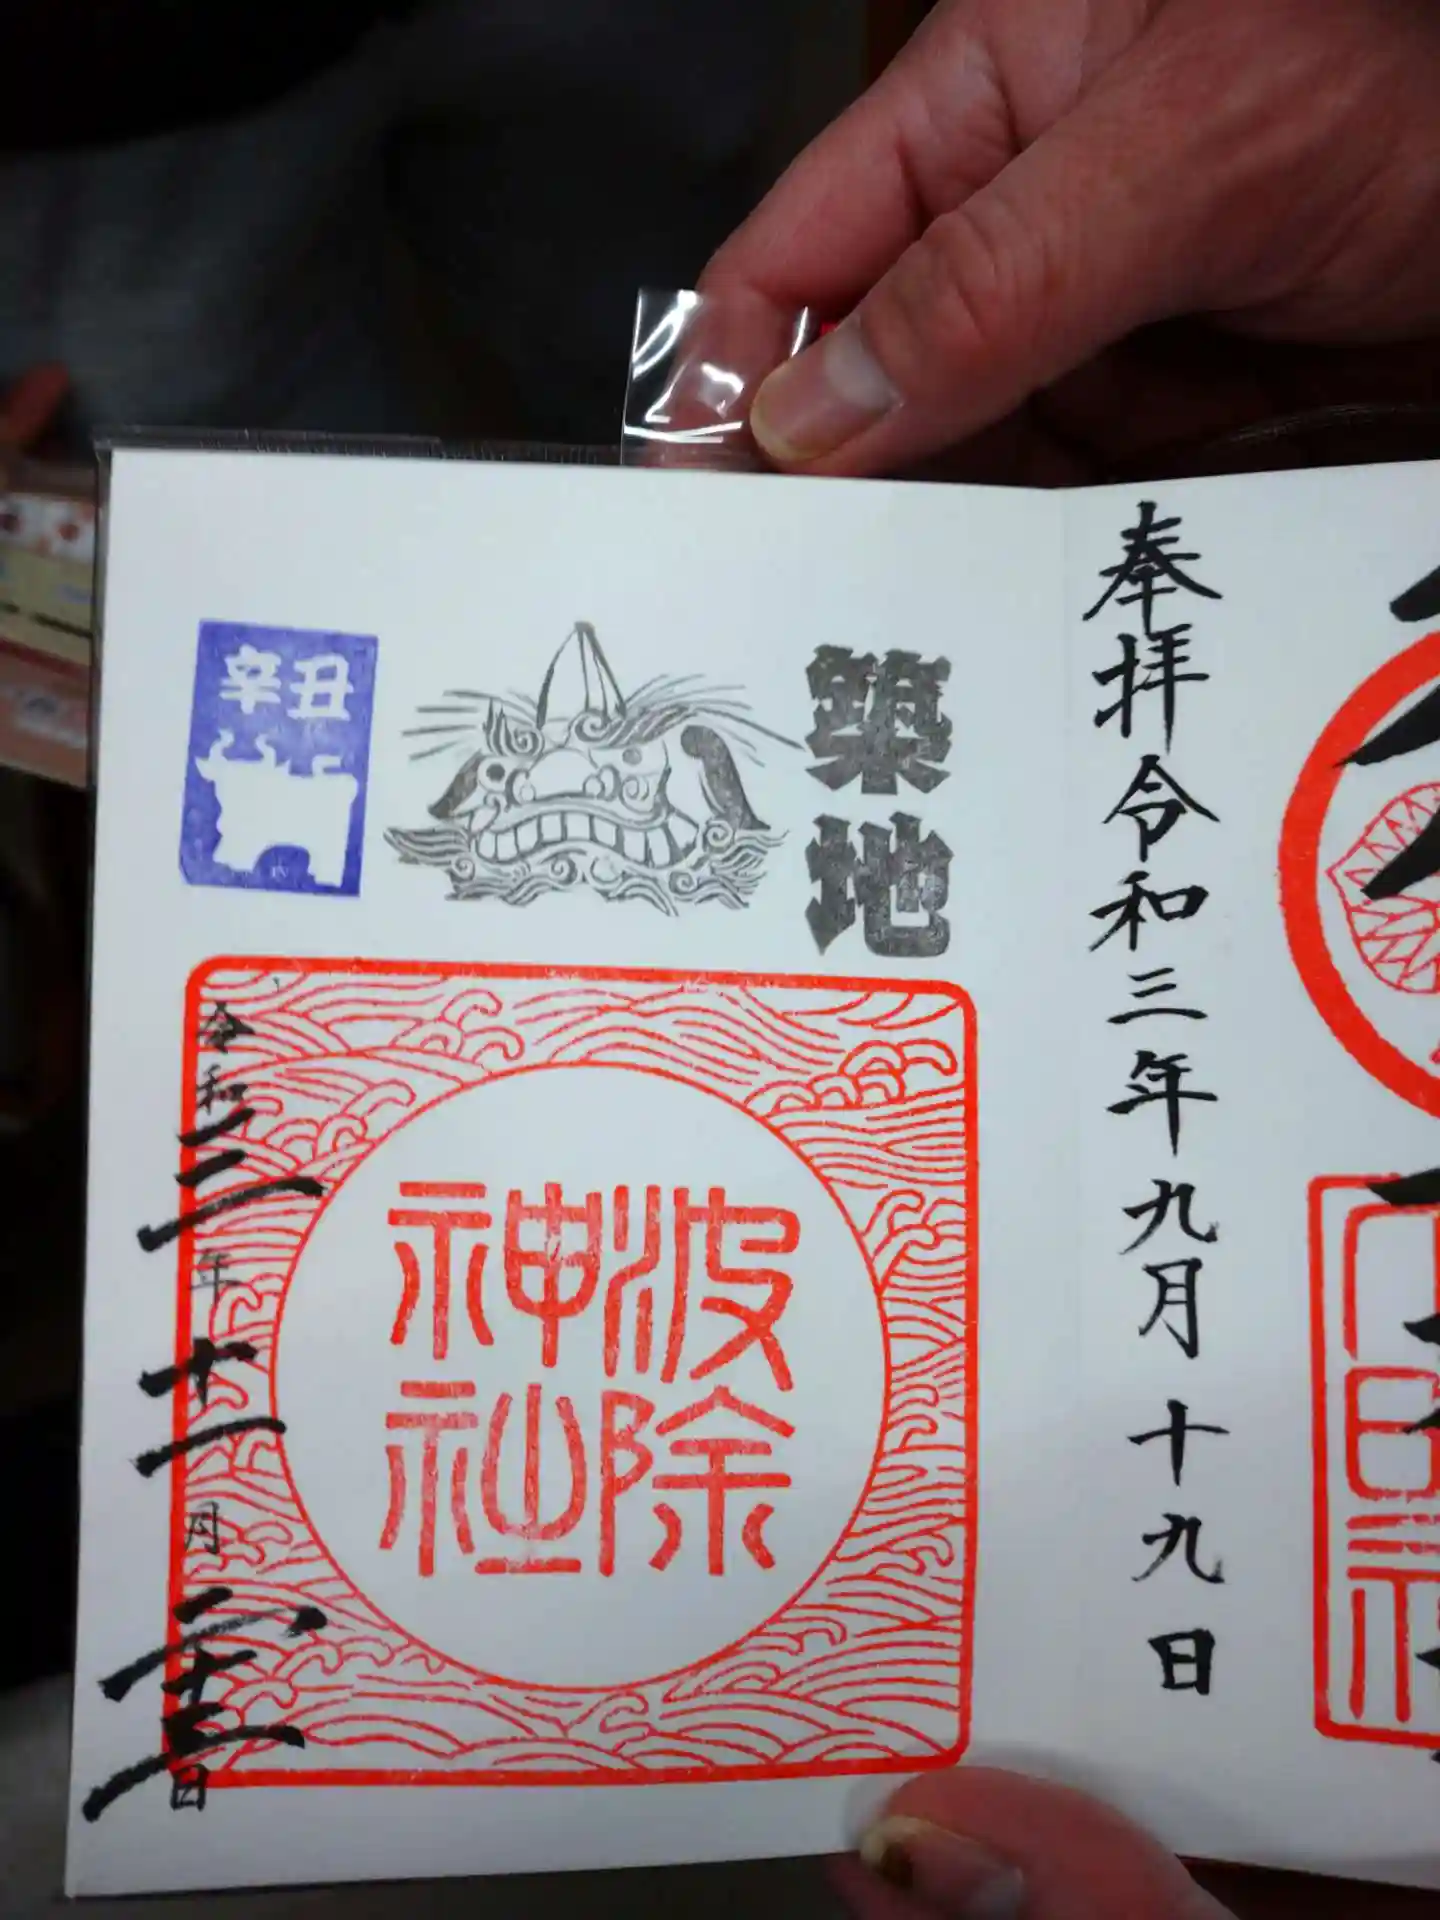 奉拝 令和三年九月十九日
築地
辛丑
波除
神社
令和三年十一月
日